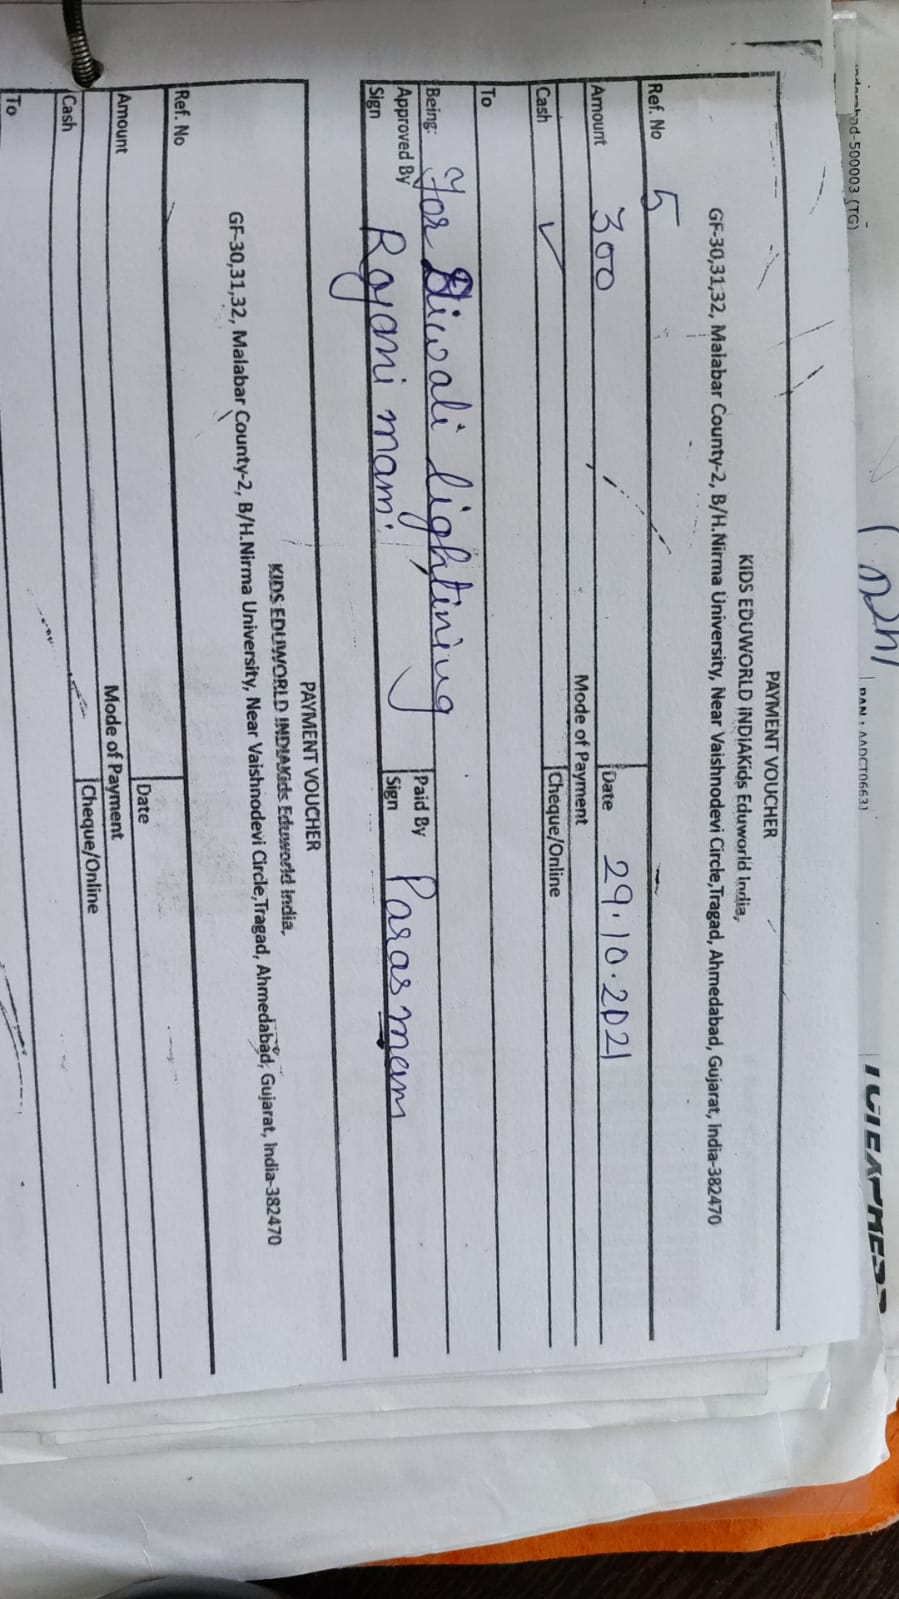 PAYMENT VOUCHER
KIDS EDUWORLD INDIAKids Eduworld India,
GF-30,31,32, Malabar County-2, B/H.Nirma University, Near Vaishnodevi Circle,Tragad, Ahmedabad, Gujarat, India-382470
Ref. No 5
Amount 300 Date 29.10.2021
Mode of Payment
Cash ✓ Cheque/Online
To
Being: For Diwali lightining
Approved By Rajani mam. Paid By Paras mam
Sign Sign
PAYMENT VOUCHER
KIDS EDUWORLD INDIAKids Eduworld India,
GF-30,31,32, Malabar County-2, B/H.Nirma University, Near Vaishnodevi Circle,Tragad, Ahmedabad, Gujarat, India-382470
Ref. No
Date
Amount
Mode of Payment
Cash Cheque/Online
To